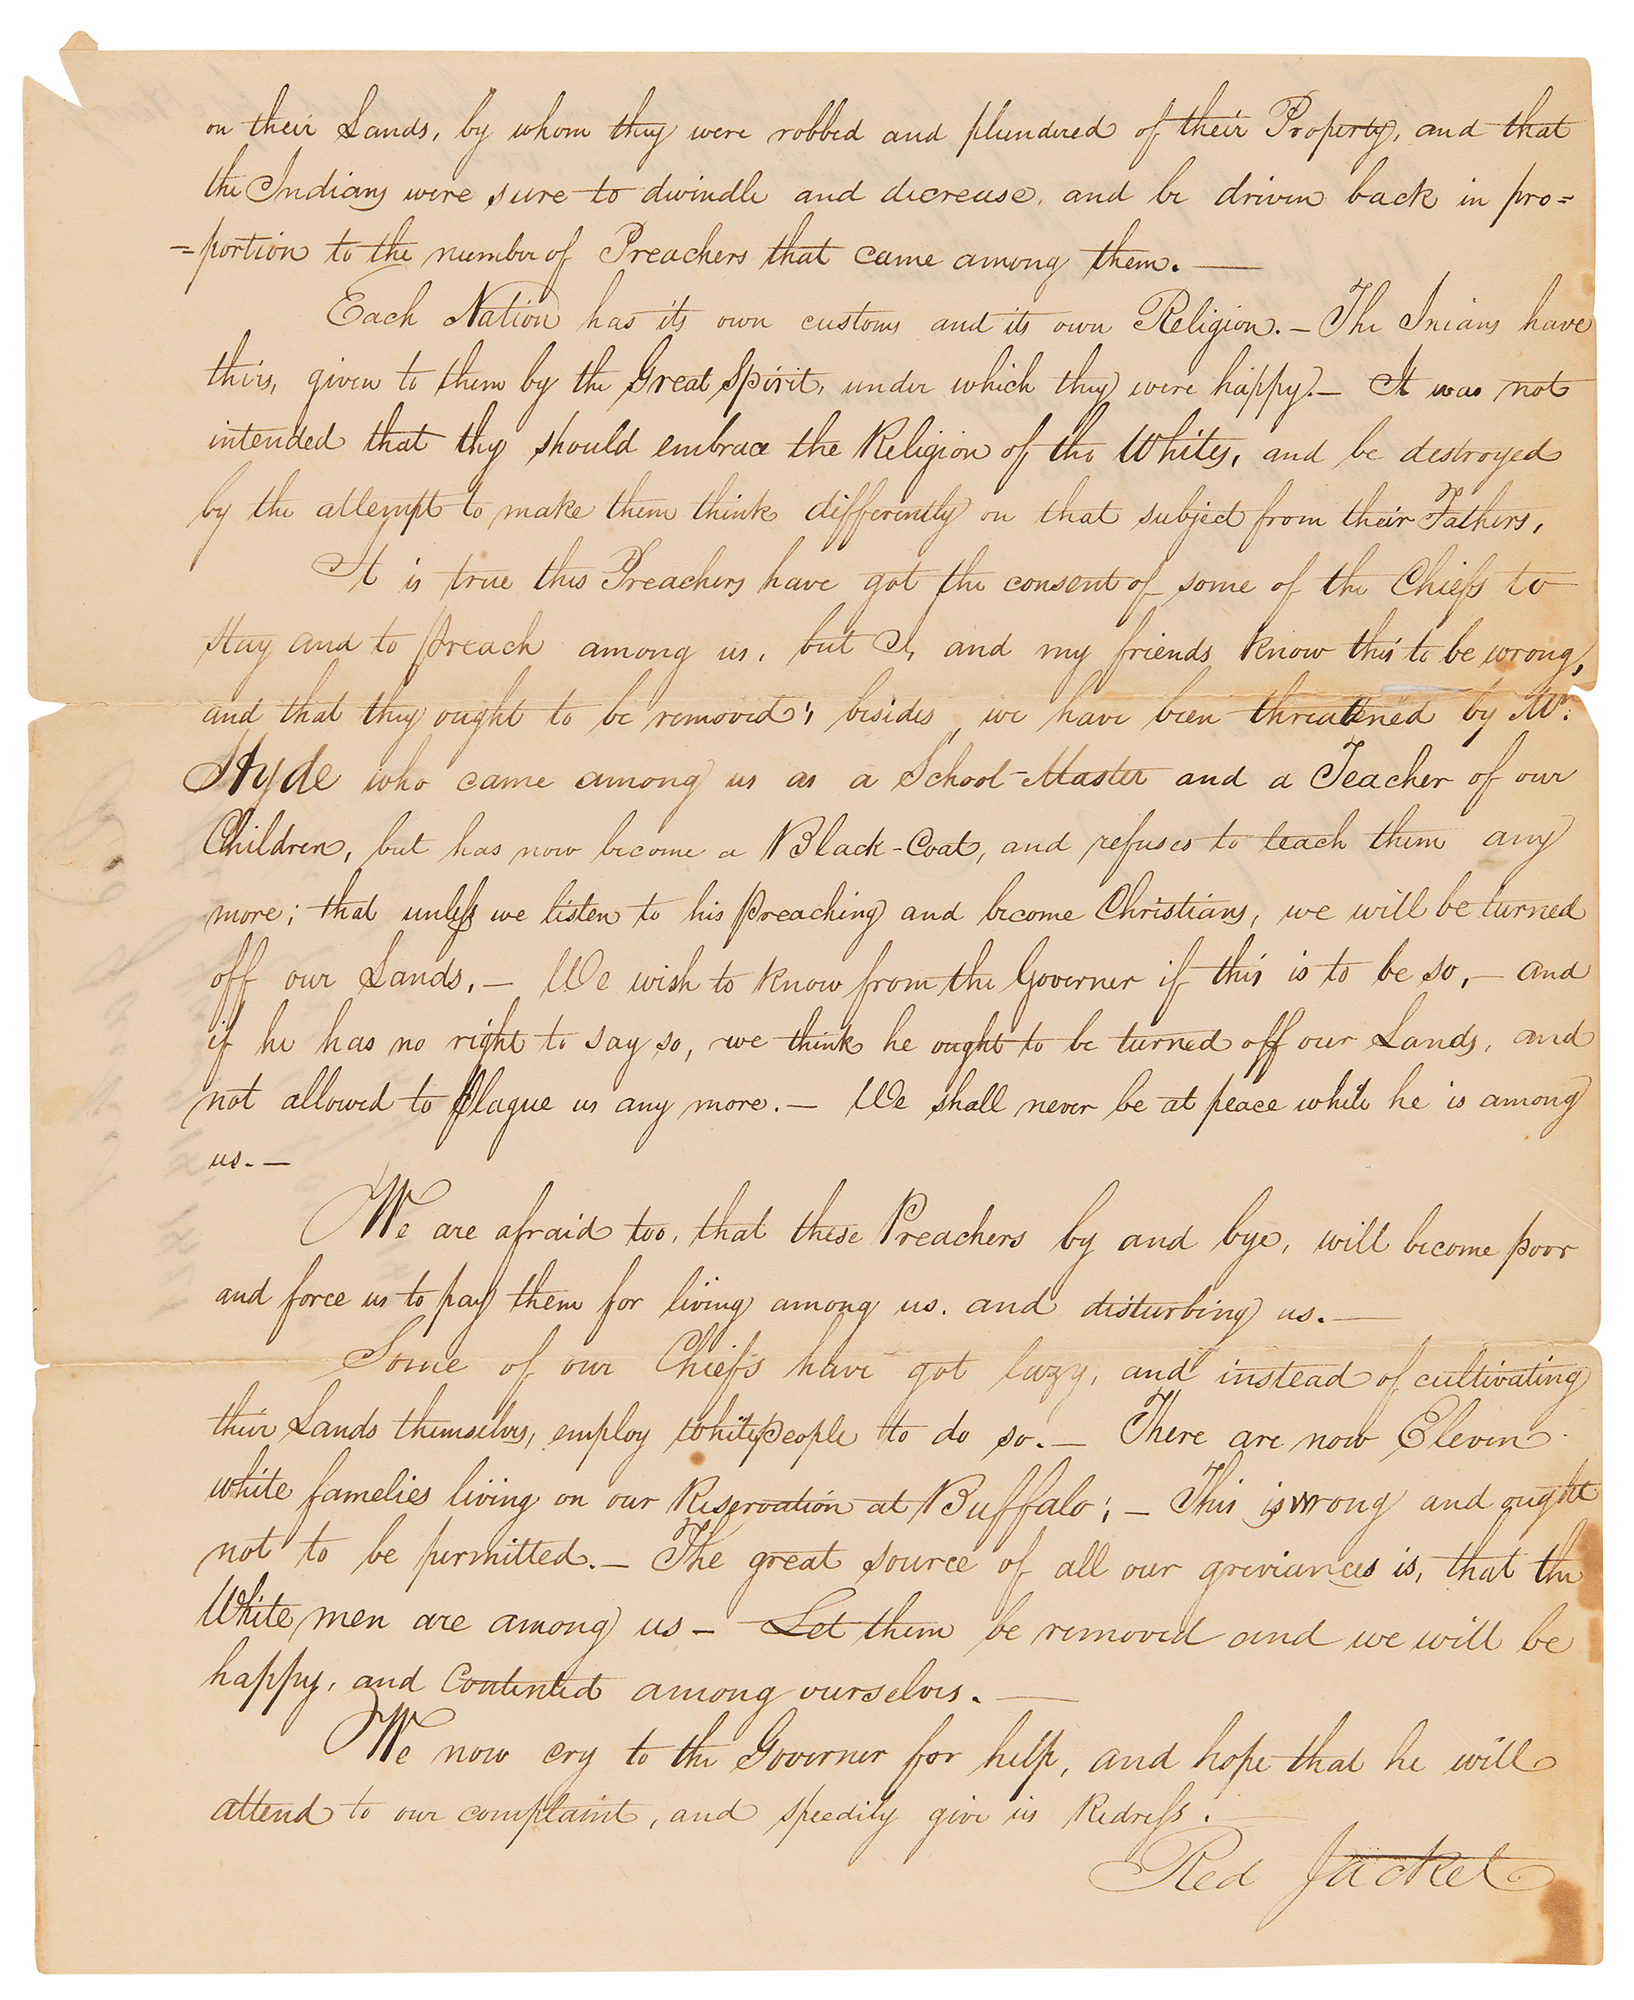 on their Lands, by whom they were robbed and plundered of their Property, and that
the Indians were sure to dwindle and decrease, and be driven back in pro=
=portion to the number of Preachers that came among them. —
Each Nation has its own customs and its own Religion. — The Inians have
their's, given to them by the Great Spirit, under which they were happy. — It was not
intended that thy should embrace the Religion of the Whites, and be destroyed
by the attempt to make them think differently on that subject from their Fathers,
It is true this Preachers have got the consent of some of the Chiefs to
stay and to preach among us, but I, and my friends know this to be wrong,
and that they ought to be removed; besides, we have been threatened by Mr.
Hyde who came among us as a School-Master and a Teacher of our
Children, but has now become a Black-Coat, and refuses to teach them any
more; that unless we listen to his preaching and become Christians, we will be turned
off our Lands, — We wish to know from the Governer if this is to be so, — and
if he has no right to say so, we think he ought to be turned off our Lands, and
not allowed to plague us any more. — We shall never be at peace while he is among
us. —
We are afraid too, that these Preachers by and bye, will become poor
and force us to pay them for living among us. and disturbing us. —
Some of our Chiefs have got lazy, and instead of cultivating
their Lands themselves, employ white people to do so. — There are now Eleven
white famelies living on our Reservation at Buffalo; — This is wrong and ought
not to be permitted. — The great source of all our greviances is, that the
White men are among us — Let them be removed and we will be
happy, and Contented among ourselves. —
We now cry to the Governer for help, and hope that he will
attend to our complaint, and speedily give us Redress.
Red Jacket